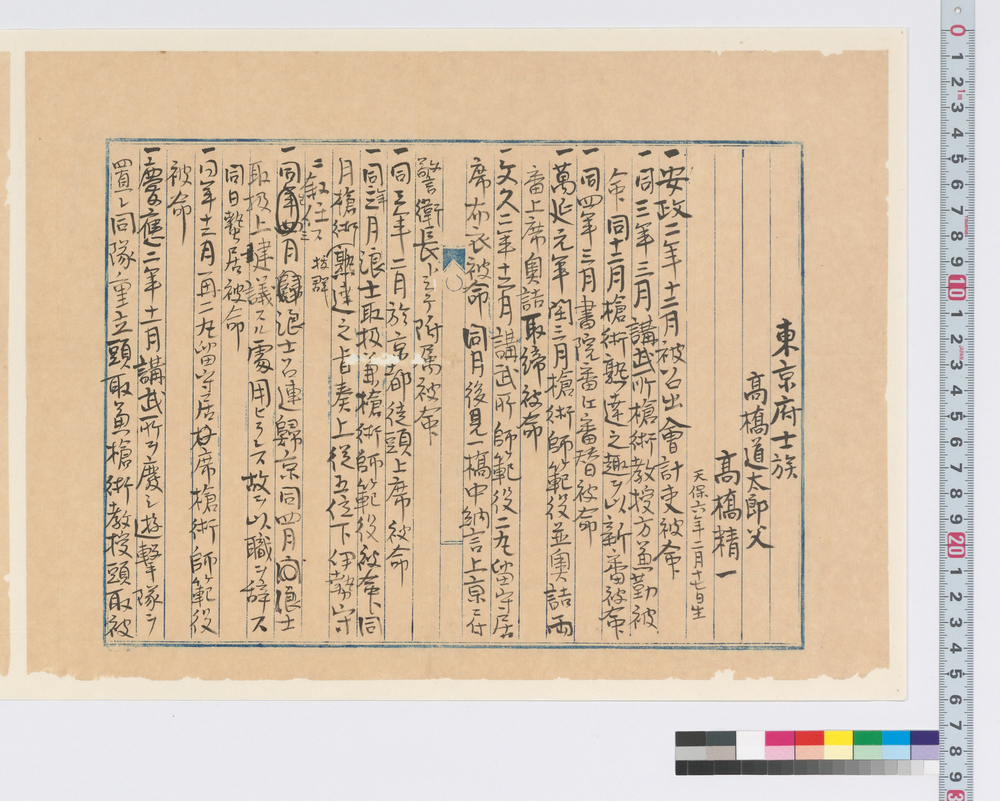 東京府士族
高橋道太郎父
高橋精一
天保六年二月十七日生
一安政二年十二月被召出會計吏被命
一同三年三月講武所槍術教授方兼勤被
命同十二月槍術熟達之趣ヲ以新番被命
一同四年三月書院番江番替被命
一萬延元年閏三月槍術師範役並奧詰両
番上席奧詰取締被命
一文久二年十二月講武所師範役二丸留守居
席布衣被命同月後見一橋中納言上京ニ付
警衛長トシテ附属被命
一同三年二月於京都徒頭上席被命
一同年三月浪士取扱兼槍術師範役被命同
月槍術熟達之旨奏上從五位下伊勢守
ニ叙任ス
拔群
一同年四月歸浪士召連歸京同四月浪士
取扱上建議スル處用ヒラレス故ヲ以職ヲ辞ス
同日蟄居被命
一同年十二月再二丸留守居席槍術師範役
被命
一慶應二年十一月講武所ヲ廢シ遊撃隊ヲ
置レ同隊ノ重立頭取兼槍術教授頭取被